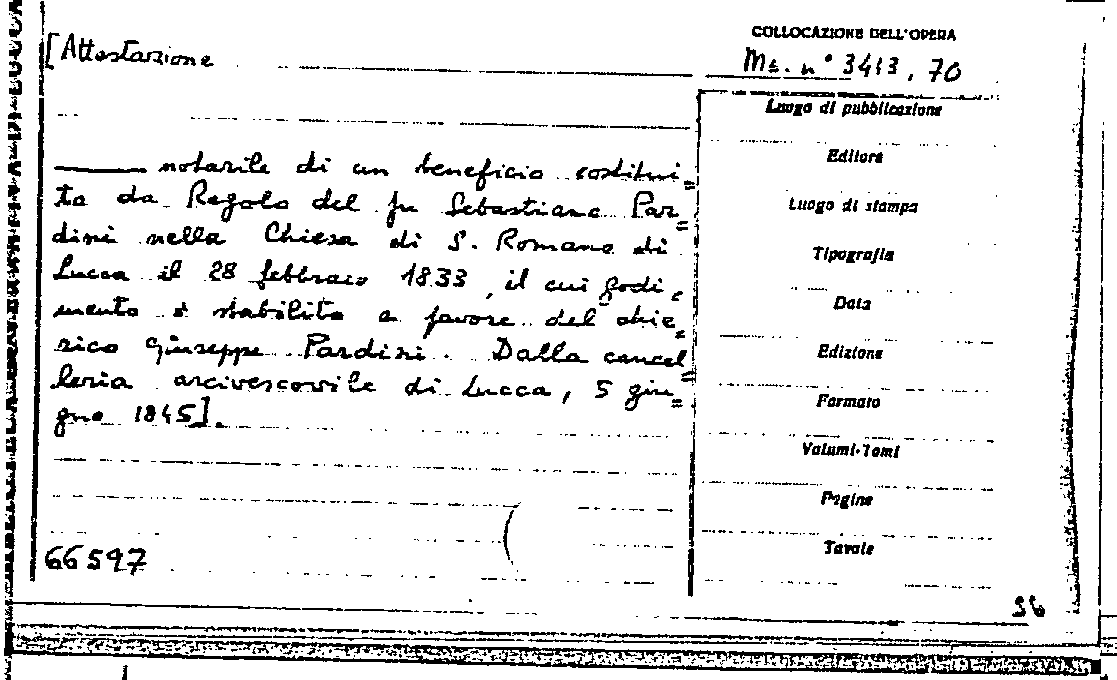 [Attestazione
COLLOCAZIONE DELL'OPERA
Ms. n° 3413, 70
——— notarile di un beneficio costitui=
to da Regolo del fu Sebastiano Par=
dini nella Chiesa di S. Romano di
Lucca il 28 febbraio 1833, il cui godi=
mento è stabilito a favore del chie=
rico Giuseppe Pardini. Dalla cancel=
leria arcivescovile di Lucca, 5 giu=
gno 1845].
66597
Luogo di pubblicazione
Editore
Luogo di stampa
Tipografia
Data
Edizione
Formato
Volumi-Tomi
Pagine
Tavole